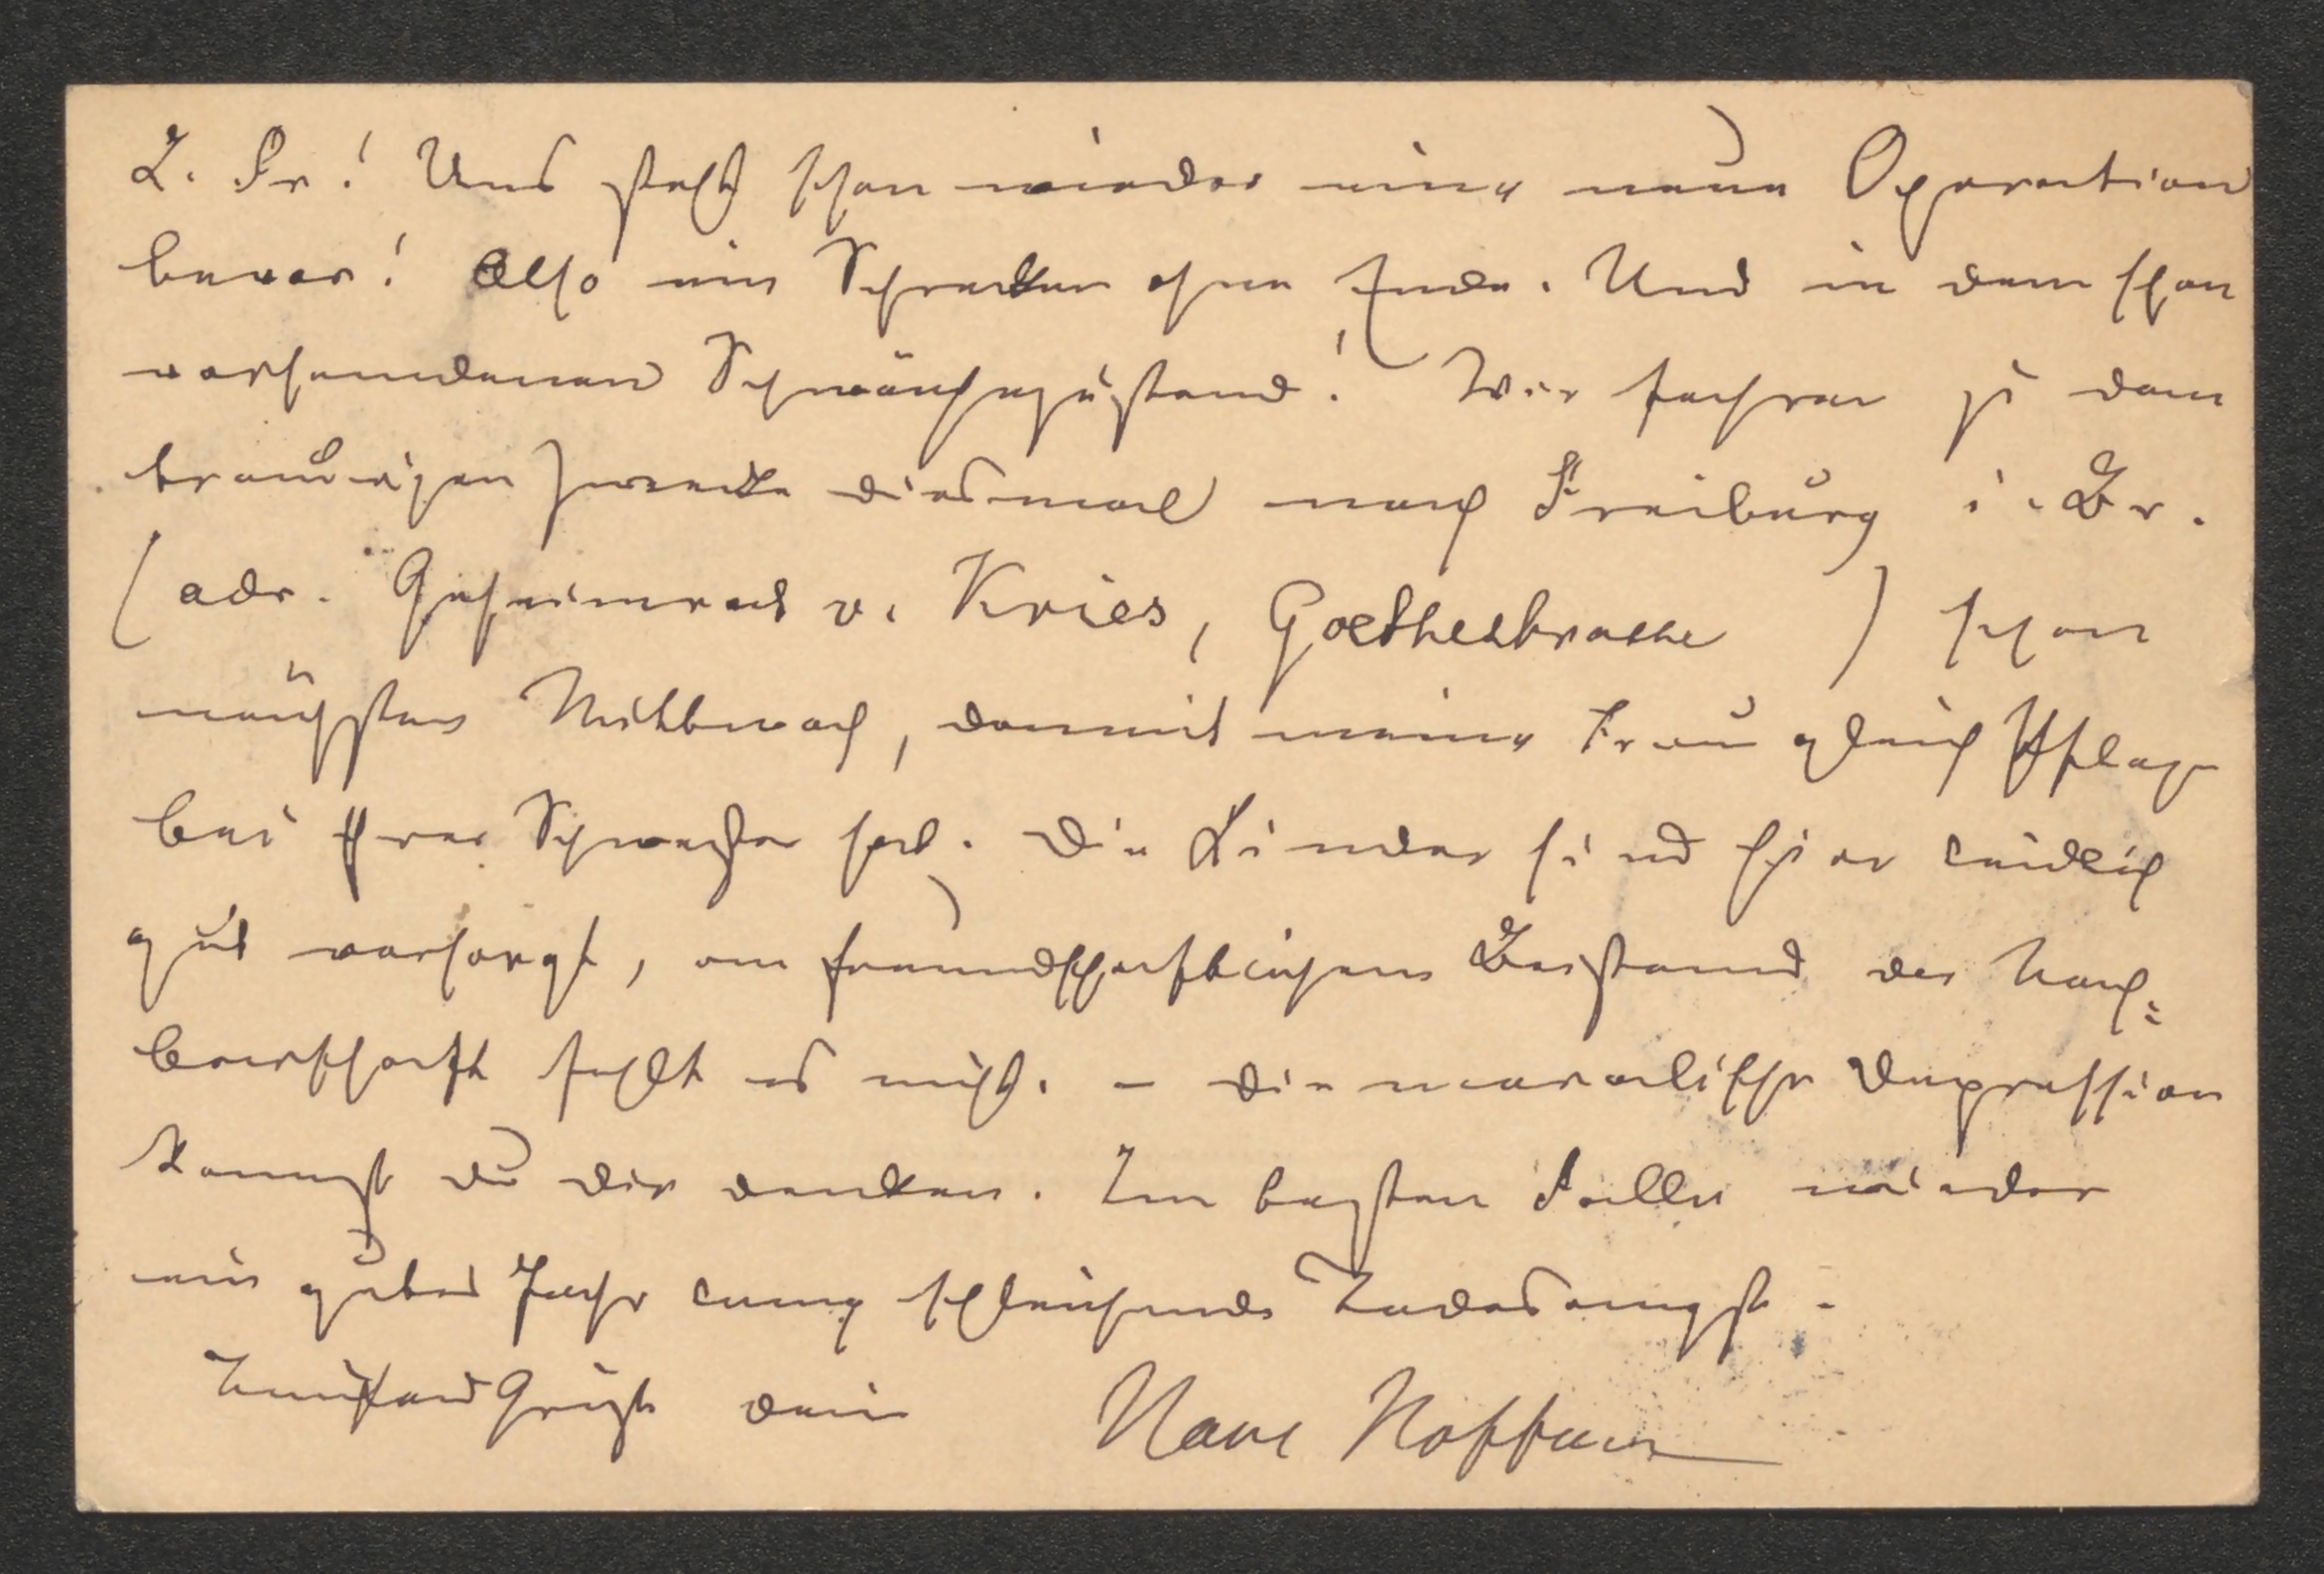 L. Fr.! Uns steht schon wieder eine neue Operation
bevor! Also ein Schrecken ohne Ende. Und in dem schon
vorhandenen Schwächezustand! Wir fahren zu dem
traurigen Zwecke diesmal nach Freiburg i. Br.
(adr. Geheimrat v. Kries, Goethestrasse ) schon
nächsten Mittwoch, damit meine Frau gleich Pflege
bei ihrer Schwester hat. Die Kinder sind hier leidlich
gut versorgt, an freundschaftlichem Beistand der Nach=
barschaft fehlt es nicht. – Die moralische Depression
kannst du dir denken. Im besten Falle wieder
ein gutes Jahr lang schleichende Todesangst.
Tausend Grüße dein Hans Hoffmann